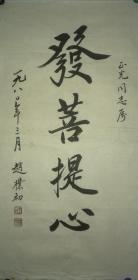 正光同志属
發菩提心
一九八〇年三月
趙樸初